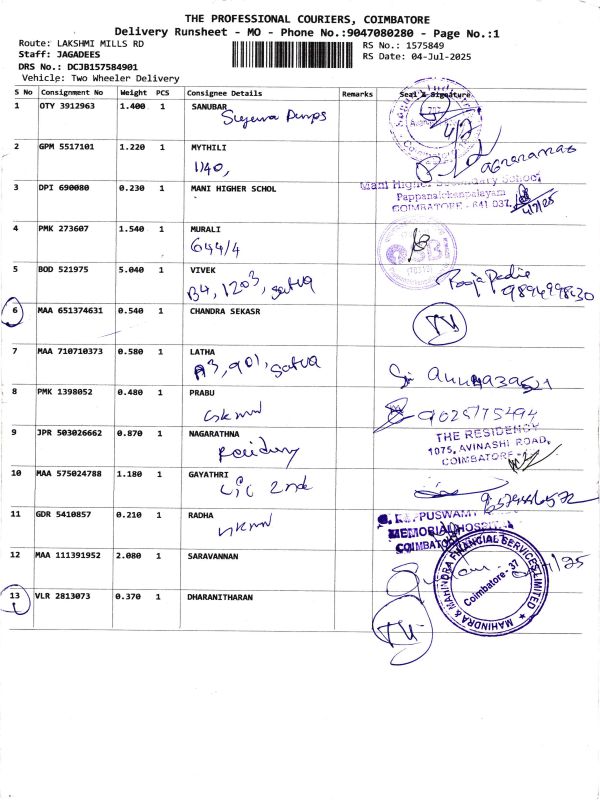 THE PROFESSIONAL COURIERS, COIMBATORE
Delivery Runsheet - MO - Phone No.:9047080280 - Page No.:1
Route: LAKSHMI MILLS RD
RS No.: 1575849
Staff: JAGADEES
RS Date: 04-Jul-2025
DRS No.: DCJB157584901
Vehicle: Two Wheeler Delivery
S No Consignment No Weight PCS Consignee Details Remarks Seal & Signature
1 OTY 3912963 1.400 1 SANUBAR
4/7
2 GPM 5517101 1.220 1 MYTHILI
1140,
3 DPI 690080 0.230 1 MANI HIGHER SCHOL
Mani Higher Secondary School
Pappanaickenpalayam
COIMBATORE - 641 037.
4/7/25
4 PMK 273607 1.540 1 MURALI
644/4
SBI
5 BOD 521975 5.040 1 VIVEK
B4, 1203, satva
6 MAA 651374631 0.540 1 CHANDRA SEKASR
7 MAA 710710373 0.580 1 LATHA
A3, 901, satva
8 PMK 1398052 0.480 1 PRABU
9025175494
9 JPR 503026662 0.870 1 NAGARATHNA
Residency
THE RESIDENCY
1075, AVINASHI ROAD,
COIMBATORE
10 MAA 575024788 1.180 1 GAYATHRI
LIC 2nd
11 GDR 5410857 0.210 1 RADHA
PUSWAMY
MEMORIAL HOSPITAL
COIMBATORE
12 MAA 111391952 2.080 1 SARAVANNAN
MAHINDRA & MAHINDRA FINANCIAL SERVICES LIMITED
Coimbatore - 37
13 VLR 2813073 0.370 1 DHARANITHARAN